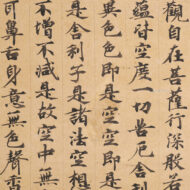 觀自在菩薩行深般若
蘊皆空度一切苦厄舍利
異色色即是空空即是
是舍利子是諸法空相
不增不減是故空中無
耳鼻舌身意無色聲香